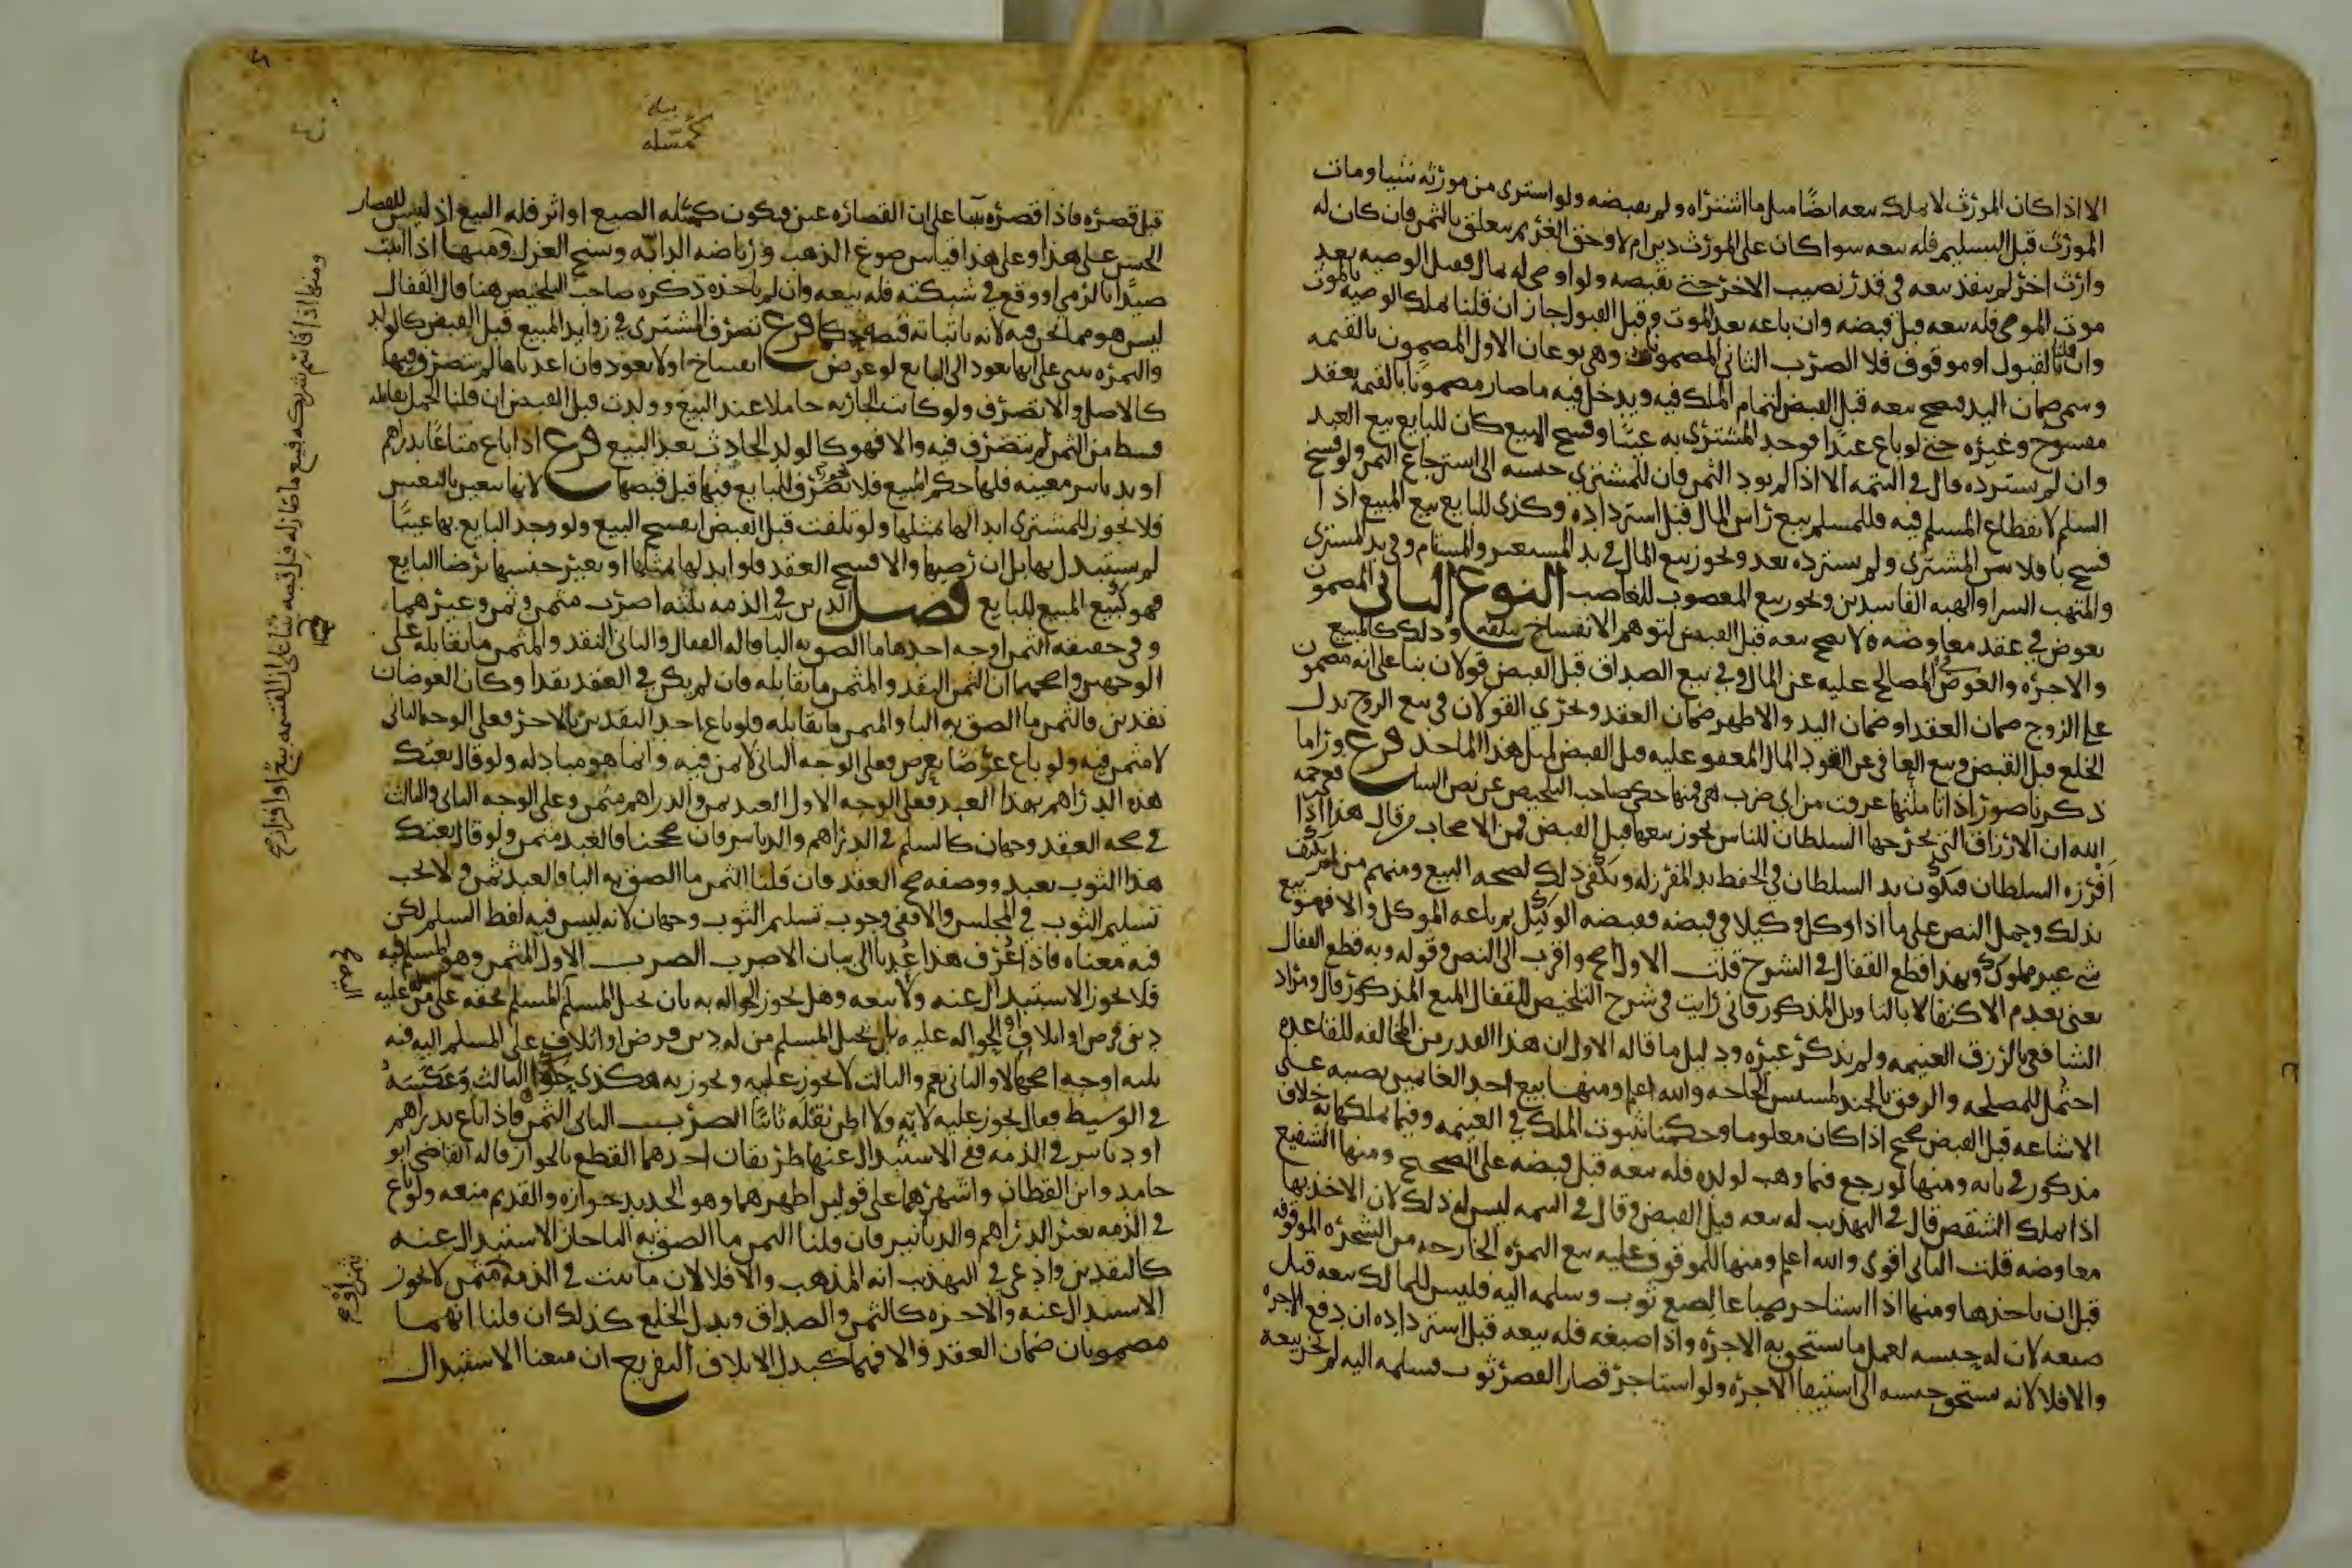 الا اذا كان المورث لا يملك بيعه ايضا مثل ما اشتراه ولم يقبضه ولو اشترى من مورثه شيا ومات
المورث قبل التسليم فله بيعه سوا كان على المورث دين ام لا وحق الغريم يتعلق بالثمن فان كان له
وارث اخر لم ينفذ بيعه في قدر نصيب الاخر حتى يقبضه ولو اوصى له بمال فقبل الوصيه بعد
موت الموصي فله بيعه قبل قبضه وان باعه بعد الموت وقبل القبول جاز ان قلنا يملك الوصيه بالموت
وان قلنا بالقبول او موقوف فلا الضرب الثاني المضمون وهو نوعان الاول المضمون بالقيمه
وسمي ضمان اليد فيصح بيعه قبل القبض لتمام الملك فيه ويدخل فيه ما صار مضمونا بالقيمه بعقد
مفسوخ وغيره حتى لو باع عبدا فوجد المشتري به عيبا وفسخ البيع كان للبايع بيع العبد
وان لم يسترده قال في التتمه الا اذا لم يود الثمن فان للمشتري حبسه الى استرجاع الثمن ولو فسخ
السلم لانقطاع المسلم فيه فللمسلم بيع راس المال قبل استرداده وكذى للبايع بيع المبيع اذا
فسخ بافلاس المشتري ولم يسترده بعد ويجوز بيع المال في يد المستعير والمستام وفي يد المشتري
والمتهب الشرا والهبه الفاسدين ويجوز بيع المغصوب للغاصب النوع الثاني المضمون
بعوض في عقد معاوضه لا يصح بيعه قبل القبض لتوهم الانفساخ بتلفه وذلك كالمبيع
والاجره والعوض المصالح عليه عن المال وفي بيع الصداق قبل القبض قولان بنا على انه مضمون
على الزوج ضمان العقد او ضمان اليد والاظهر ضمان العقد ويجري القولان في بيع الزوج بدل
الخلع قبل القبض وبيع العافي عن القود المال المعفو عليه قبل القبض لمثل هذا الماخذ فرع ورا ما
ذكرنا صور اذا تاملتها عرفت من اي ضرب هي فمنها حكى صاحب التلخيص عن نص الشافعي رحمه
الله ان الارزاق التي يخرجها السلطان للناس يجوز بيعها قبل القبض فمن الاصحاب من قال هذا اذا
افرزه السلطان فيكون يد السلطان في الحفظ يد المقرر له ويكفى ذلك لصحه البيع ومنهم من لم يكتف
بذلك وحمل النص على ما اذا وكل وكيلا في قبضه فقبضه الوكيل ثم باعه الموكل والا فهو بيع
شي غير مملوك وبهذا قطع القفال في الشرح قلت الاول اصح واقرب الى النص وقوله وبه قطع القفال
يعني بعدم الاكتفا لا بالتاويل المذكور فاني رايت في شرح التلخيص للقفال المنع المذكور قال ومراد
الشافعي بالرزق الغنيمه ولم يذكر غيره ودليل ما قاله الاول ان هذا القدر من المخالفه للقاعده
احتمل للمصلحه والرفق بالجند لمسيس الحاجه والله اعلم ومنها بيع احد الغانمين نصيبه على
الاشاعه قبل القبض صحيح اذا كان معلوما وحكمنا بثبوت الملك في الغنيمه وفيما يملكها به خلاف
مذكور في بابه ومنها لو رجع فيما وهب لولده فله بيعه قبل قبضه على الصحيح ومنها الشفيع
اذا تملك الشقص قال في التهذيب له بيعه قبل القبض وقال في التتمه ليس له ذلك لان الاخذ بها
معاوضه قلت الثاني اقوى والله اعلم ومنها للموقوف عليه بيع الثمره الخارجه من الشجره الموقوفه
قبل ان ياخذها ومنها اذا استاجر صباغا لصبغ ثوب وسلمه اليه فليس للمالك بيعه قبل
صبغه لان له حبسه لعمل ما يستحق به الاجره واذا صبغه فله بيعه قبل استرداده ان دفع الاجره
والا فلا لانه يستحق حبسه الى استيفا الاجره ولو استاجر قصارا لقصر ثوب وسلمه اليه لم يجز بيعه
بيان
كمسله
قبل قصره فاذا قصره بنا على ان القصاره عين فيكون كمسله الصبغ او اثر فله البيع اذ ليس للقصار
الحبس على هذا وعلى هذا قياس صوغ الذهب ورياضه الدابه ونسج الغزل ومنها اذا اثبت
صيدا بالرمي او وقع في شبكته فله بيعه وان لم ياخذه ذكره صاحب التلخيص هنا قال القفال
ليس هو مما نحن فيه لانه باثباته قبضه حكما فرع تصرف المشتري في زوايد المبيع قبل القبض كالولد
والثمره يبنى على انها تعود الى البايع لو عرض انفساخ او لا يعود فان اعدناها لم يتصرف فيها
كالاصل والا تصرف ولو كانت الجاريه حاملا عند البيع وولدت قبل القبض ان قلنا الحمل يقابله
قسط من الثمن لم يتصرف فيه والا فهو كالولد الحادث بعد البيع فرع اذا باع متاعا بدراهم
او بدنانير معينه فلها حكم المبيع فلا يجوز تصرف البايع فيها قبل قبضها لانها تتعين بالتعيين
فلا يجوز للمشتري ابدالها بمثلها ولو تلفت قبل القبض انفسخ البيع ولو وجد البايع بها عيبا
لم يستبدل بها بل ان رضيها والا فسخ العقد فلو ابدلها بمثلها او بغير جنسها برضا البايع
فهو كبيع المبيع للبايع فصل الدين في الذمه ثلثه اضرب مثمن وثمن وغيرهما
وفي حقيقه الثمن اوجه احدها ما الصق به البا قاله القفال والثاني النقد والمثمن ما يقابله على
الوجهين واصحها ان الثمن النقد والمثمن ما يقابله فان لم يكن في العقد نقد او كان العوضان
نقدين فالثمن ما الصق به البا والمثمن ما يقابله فلو باع احد النقدين بالاخر فعلى الوجه الثاني
لا مثمن فيه ولو باع عرضا بعرض فعلى الوجه الثاني لا ثمن فيه وانما هو مبادله ولو قال بعتك
هذه الدراهم بهذا العبد فعلى الوجه الاول العبد ثمن والدراهم مثمن وعلى الوجه الثاني والثالث
في صحه العقد وجهان كالسلم في الدراهم والدنانير فان صححنا فالعبد مثمن ولو قال بعتك
هذا الثوب بعبد ووصفه صح العقد فان قلنا الثمن ما الصق به البا فالعبد ثمن ولا يجب
تسليم الثوب في المجلس والا ففي وجوب تسليم الثوب وجهان لانه ليس فيه لفظ السلم لكن
فيه معناه فاذا عرف هذا عدنا الى بيان الاضرب الضرب الاول المثمن وهو المسلم فيه
فلا يجوز الاستبدال عنه ولا بيعه وهل يجوز الحواله به بان يحيل المسلم اليه المسلم بحقه على من له عليه
دين قرض او اتلاف او الحواله عليه بان يحيل المسلم من له دين قرض او اتلاف على المسلم اليه فيه
ثلثه اوجه اصحها لا والثاني نعم والثالث لا يجوز عليه ويجوز به هكذى حكوا الثالث وعكسه
في الوسيط فقال يجوز عليه لا به ولا اظن نقله ثابتا الضرب الثاني الثمن فاذا باع بدراهم
او دنانير في الذمه ففي الاستبدال عنها طريقان احدهما القطع بالجواز قاله القاضي ابو
حامد وابن القطان واشهرهما على قولين اظهرهما وهو الجديد جوازه والقديم منعه ولو باع
في الذمه بغير الدراهم والدنانير فان قلنا الثمن ما الصق به البا جاز الاستبدال عنه
كالنقدين وادعى في التهذيب انه المذهب والا فلا لان ما ثبت في الذمه مثمن لا يجوز
الاستبدال عنه والاجره كالثمن والصداق وبدل الخلع كذلك ان قلنا انهما
مضمونان ضمان العقد والا فهما كبدل الاتلاف التفريع ان منعنا الاستبدال
ومنها اذا قاسم شريكه فبيع ما صار له قبل قبضه بنا على ان القسمه بيع او افراز صح